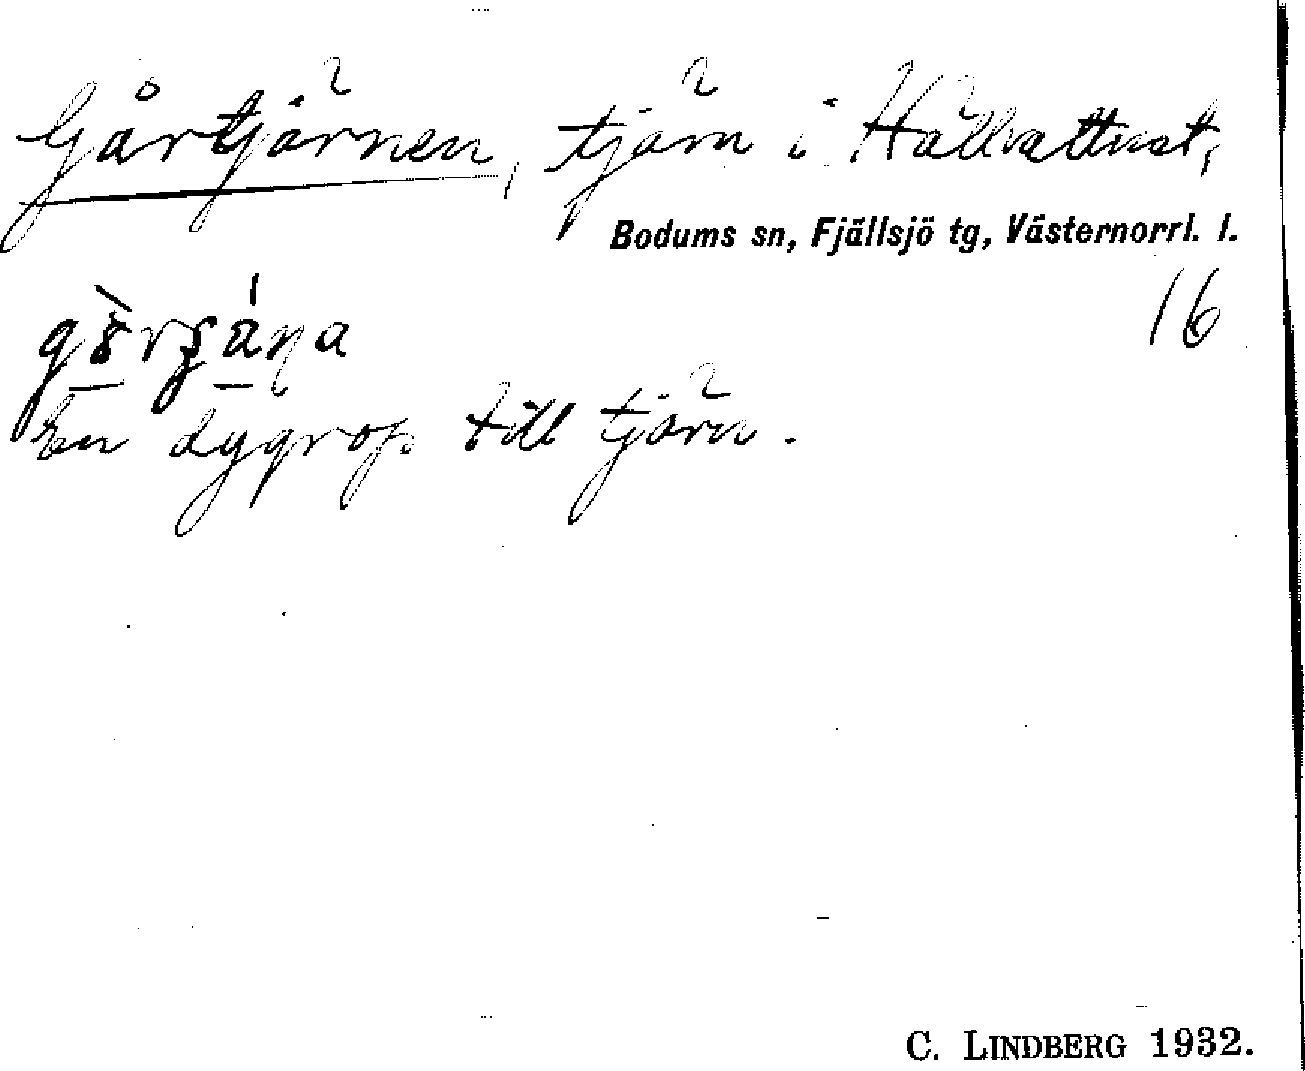 Gårtjärnen, tjärn i Hällvattnet,
Bodums sn, Fjällsjö tg, Västernorrl. l.
16
En dygrop till tjärn.
C. LINDBERG 1932.